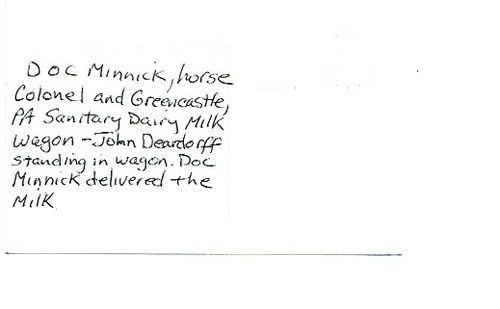 Doc Minnick, horse
Colonel and Greencastle,
PA Sanitary Dairy Milk
Wagon - John Deardorff
standing in wagon. Doc
Minnick delivered the
Milk